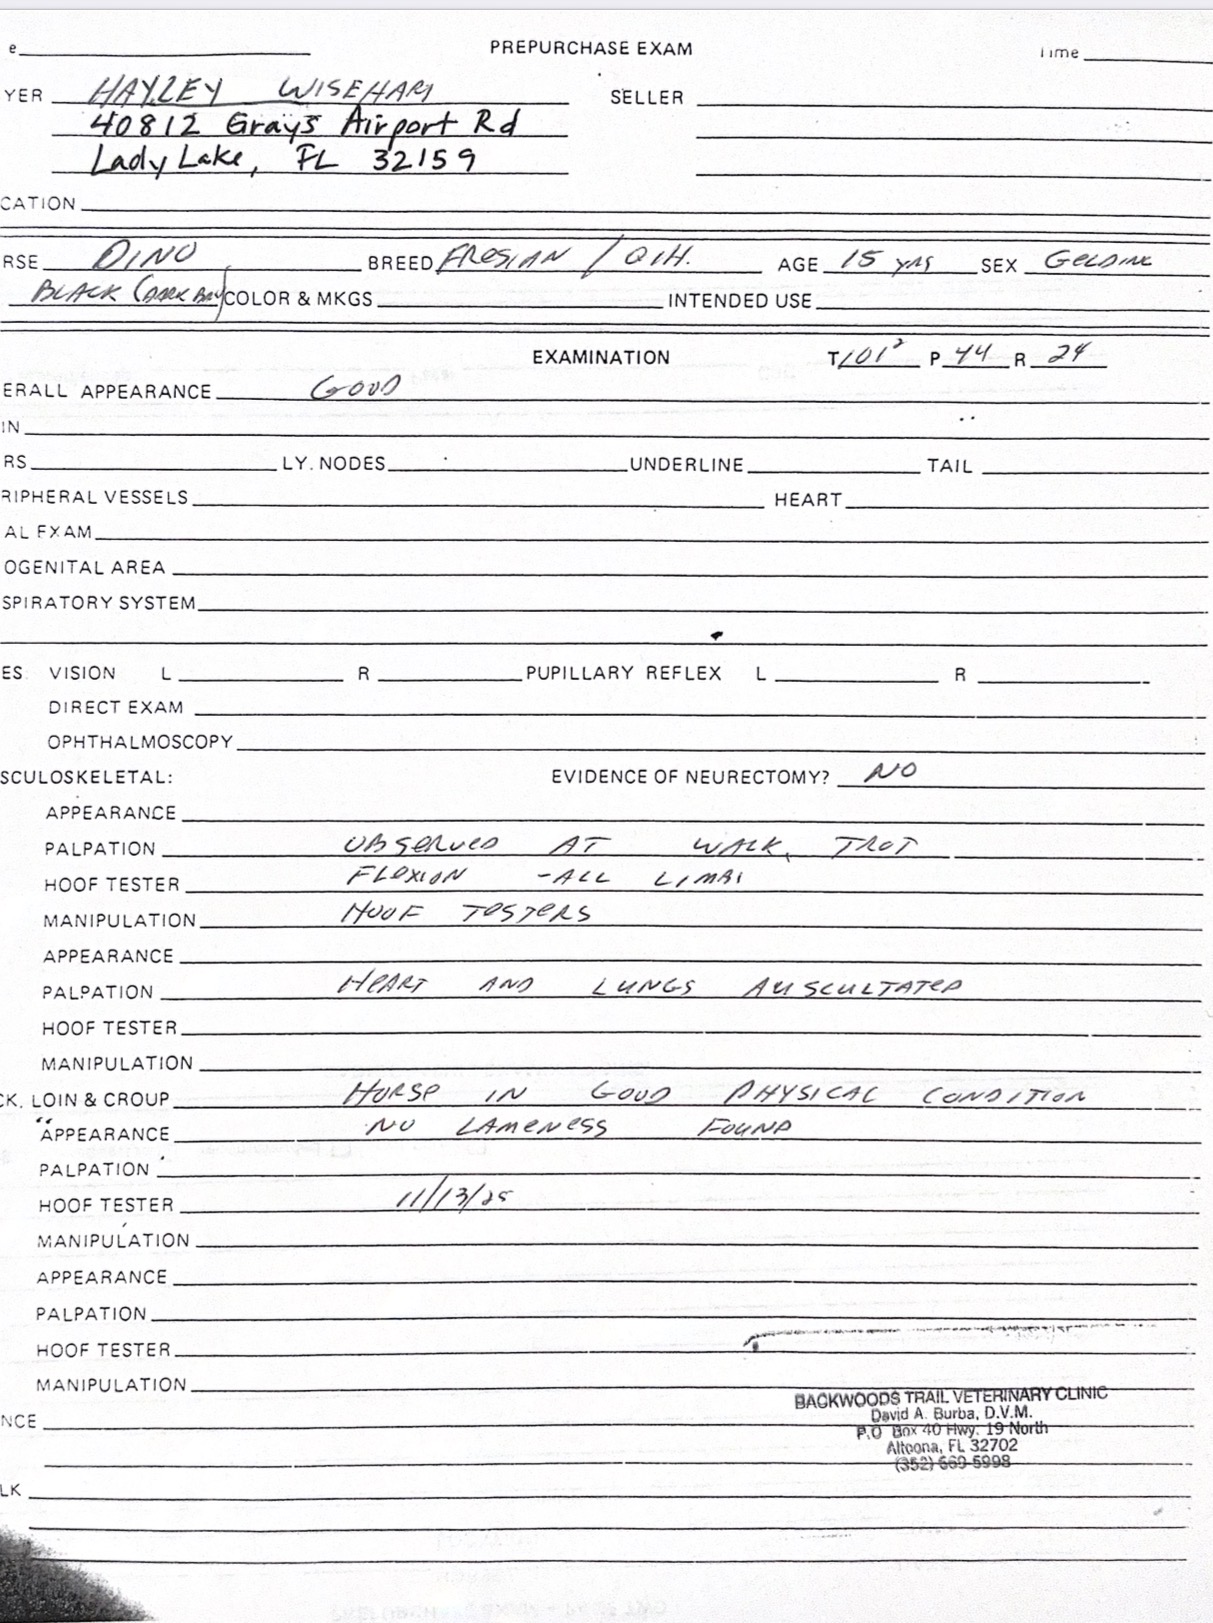 e
PREPURCHASE EXAM
Time
YER HAYLEY WISEHAM SELLER
40812 Grays Airport Rd
Lady Lake, FL 32159
CATION
RSE DINO BREED FRESIAN / Q.H. AGE 15 yrs SEX GELDING
BLACK (DARK BAY) COLOR & MKGS INTENDED USE
EXAMINATION T 101² P 44 R 24
ERALL APPEARANCE GOOD
IN
RS LY. NODES UNDERLINE TAIL
RIPHERAL VESSELS HEART
AL EXAM
OGENITAL AREA
SPIRATORY SYSTEM
ES VISION L R PUPILLARY REFLEX L R
DIRECT EXAM
OPHTHALMOSCOPY
SCULOSKELETAL: EVIDENCE OF NEURECTOMY? NO
APPEARANCE
PALPATION OBSERVED AT WALK, TROT
HOOF TESTER FLEXION - ALL LIMBS
MANIPULATION HOOF TESTERS
APPEARANCE
PALPATION HEART AND LUNGS AUSCULTATED
HOOF TESTER
MANIPULATION
CK, LOIN & CROUP HORSE IN GOOD PHYSICAL CONDITION
APPEARANCE NO LAMENESS FOUND
PALPATION
HOOF TESTER 11/13/25
MANIPULATION
APPEARANCE
PALPATION
HOOF TESTER
MANIPULATION
BACKWOODS TRAIL VETERINARY CLINIC
NCE David A. Burba, D.V.M.
P.O Box 40 Hwy. 19 North
Altoona, FL 32702
(352) 669-5998
LK